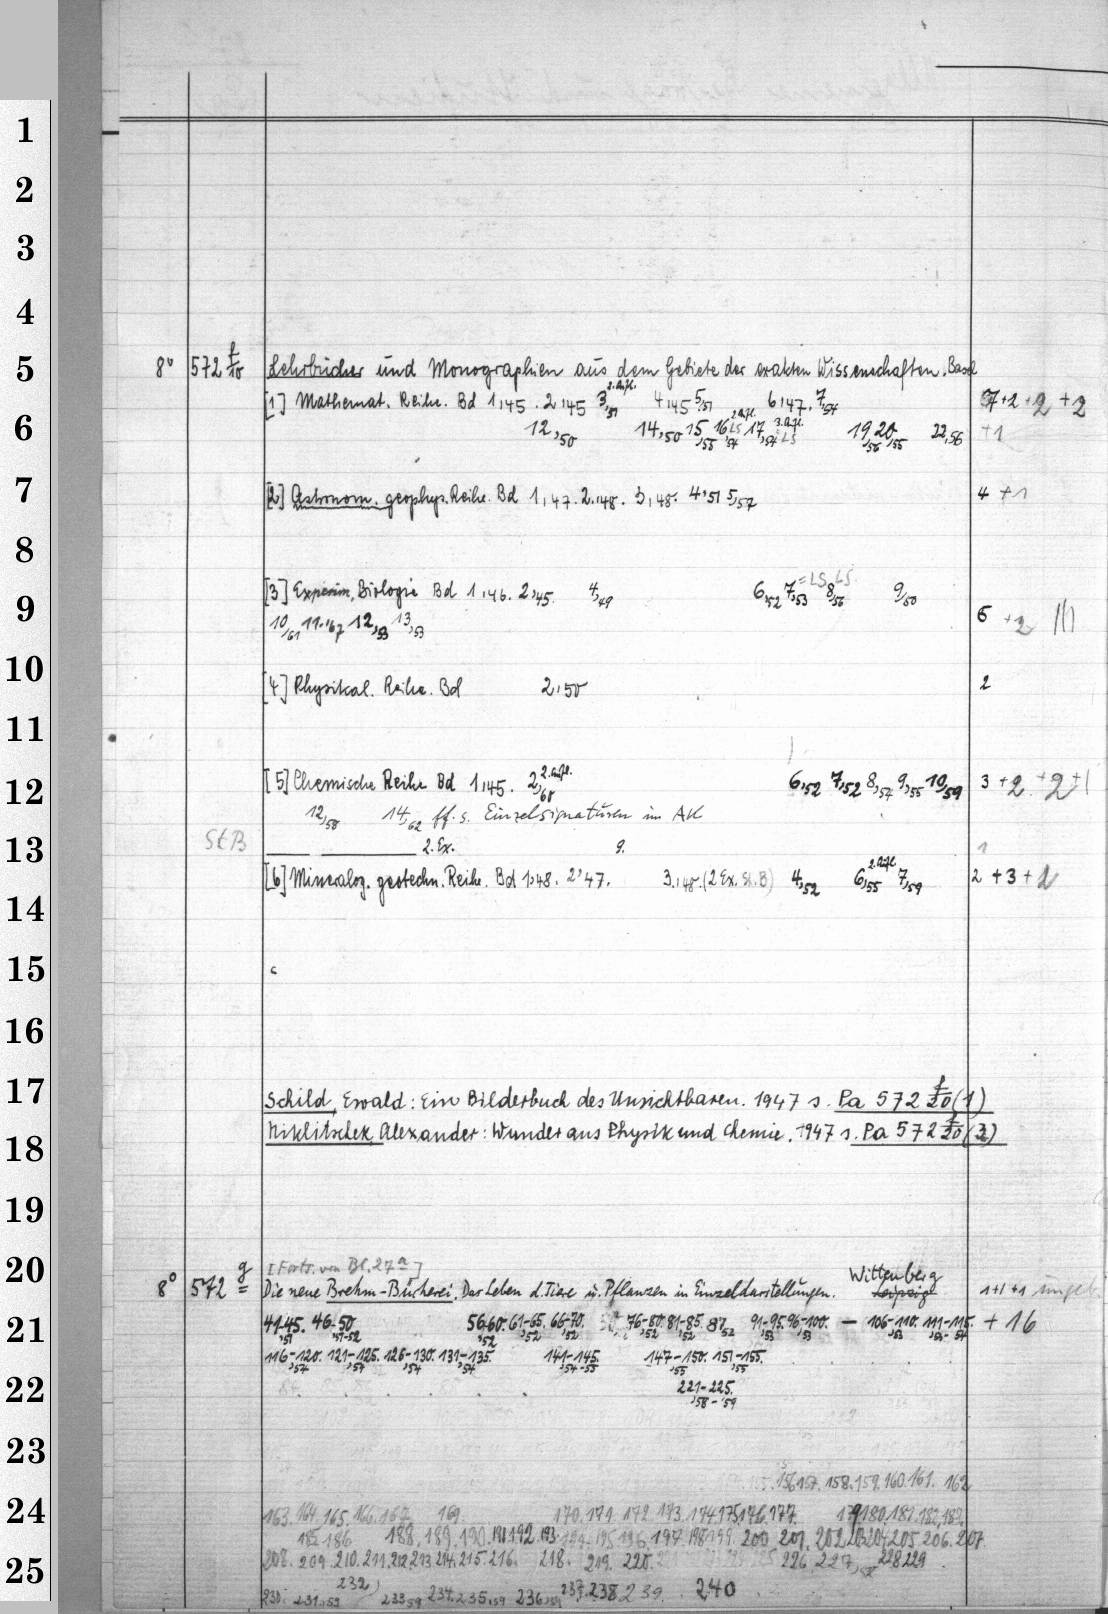 1
2
3
4
8° 572 f/10 Lehrbücher und Monographien aus dem Gebiete der exakten Wissenschaften. Basel
5
[1] Mathemat. Reihe. Bd 1,45. 2,45 3,51 2. Aufl. 4,45 5,51 6,47. 7,54 7+2+2+2
6
12,50 14,50 15,55 16,54 2. Aufl. LS 17,54 3. Aufl. LS 19,56 20,55 22,56 +1
7
[2] Astronom. geophys. Reihe. Bd 1,47. 2,48. 3,48. 4,51 5,57 4 +1
8
[3] Experim. Biologie Bd 1,46. 2,45. 4,49 6,52 7,53 =LS 8,56 LS. 9/50
9
10/61 11,67 12,53 13,53 6 +2
10
[4] Physikal. Reihe. Bd 2,50 2
11
[5] Chemische Reihe Bd 1,45. 2,68 2. Aufl. 6,52 7,52 8,57 9,55 10,59 3 +2 +2 +1
12
12,58 14,62 ff. s. Einzelsignaturen im AK
13
StB 2. Ex. 9. 1
[6] Mineralog. geotechn. Reihe. Bd 1,48. 2,47. 3,48. (2 Ex. St.B) 4,52 6,55 2. Aufl. 7,59 2 +3 +2
14
15
16
17
Schild, Ewald: Ein Bilderbuch des Unsichtbaren. 1947 s. Pa 572 f/20 (1)
Niklitschek Alexander: Wunder aus Physik und Chemie. 1947 s. Pa 572 f/20 (2)
18
19
20
[Forts. von Bl. 27a]
Wittenberg
8° 572 g Die neue Brehm-Bücherei. Das Leben d. Tiere u. Pflanzen in Einzeldarstellungen. Leipzig 1+1+1
21
41-45,51. 46-50,51-52 56-60,52. 61-65,52. 66-70,52. 76-80,52. 81-85,52. 87,52 91-95,53. 96-100,53. — 106-110,53. 111-115,54. + 16
116-120,54. 121-125,54. 126-130,54. 131-135,54. 141-145,54-55. 147-150,55. 151-155,55.
22
221-225,58-59.
23
156 157. 158. 159. 160. 161. 162
24
163. 164. 165. 166. 167 169. 170. 171. 172. 173. 174. 175. 176. 177. 179 180. 181. 182. 183.
185 186 188. 189. 190. 191 192. 193 194. 195 196. 197. 198 199. 200 201. 202 203 204 205. 206. 207
25
208. 209. 210. 211. 212. 213 214. 215. 216. 218. 219. 220. 226. 227, 228 229
230. 231,59 232, 233,59 234. 235,59 236,59 237. 238 239. 240